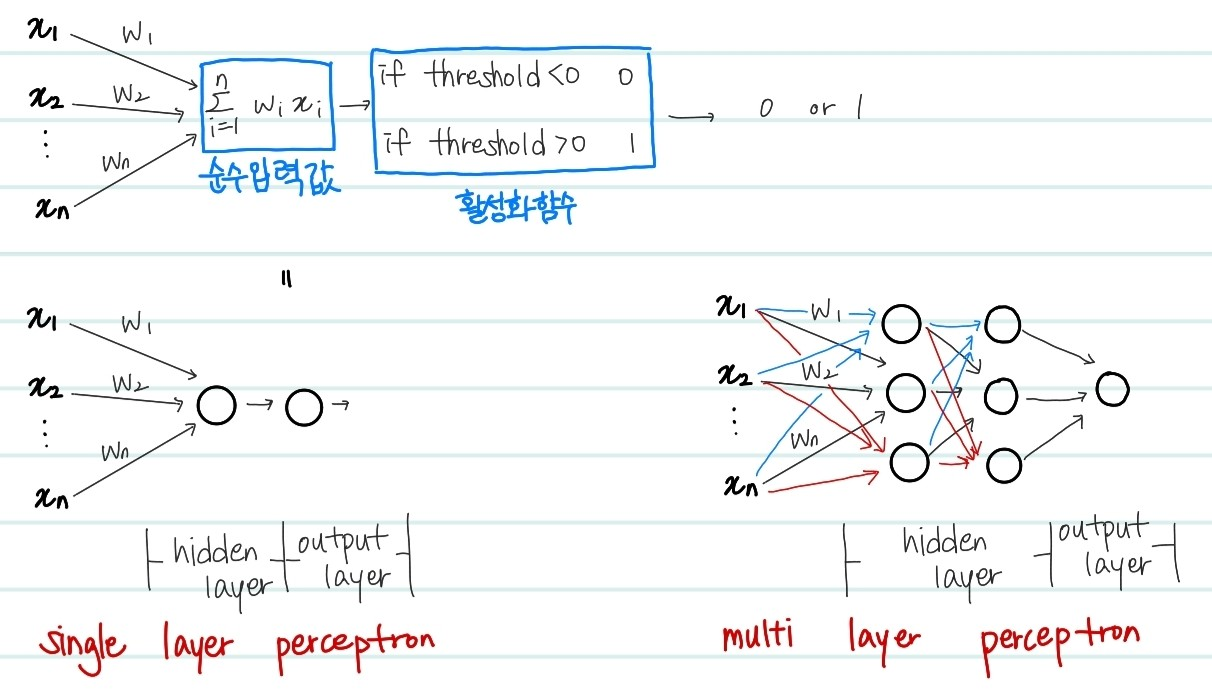 x1 w1
x2 w2 n Σ i=1 wi xi if threshold<0 0
if threshold>0 1
0 or 1
⋮
wn
xn
순수입력값
활성화함수
=
x1 w1
x2 w2
⋮
wn
xn
hidden layer
output layer
single layer perceptron
x1 w1
x2 w2
⋮
wn
xn
hidden layer
output layer
multi layer perceptron